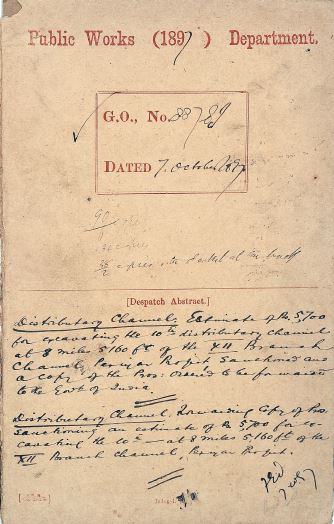 Public Works (1897) Department.
G.O., No. 887
DATED 7, October 1897
[Despatch Abstract.]
Distributary Channels, Estimate of Rs 5,700
for excavating the 10th distributary channel
at 8 miles 5,160 ft of the XII Branch
Channel, Periyar Project Sanctioned and
a copy of the Pros: Ordered to be forwarded
to the Govt of India
Distributary Channel, Forwarding Copy of Pros
Sanctioning an estimate of Rs 5,700 for ex-
cavating the 10th at 8 miles 5,160 ft of the
XII Branch Channel, Periyar Project.